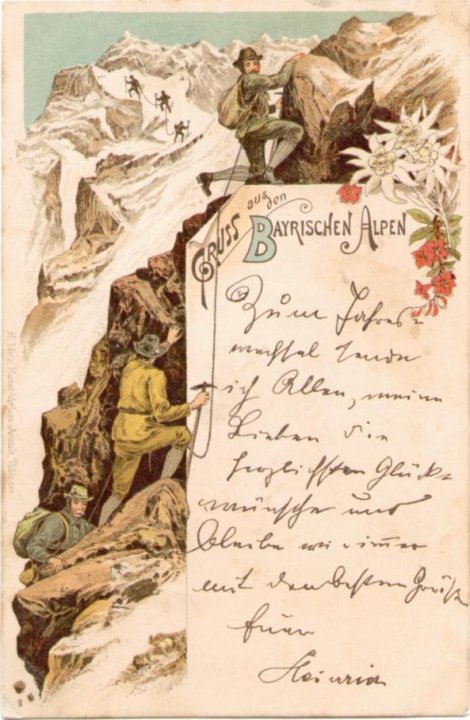 Gruss aus den
Bayrischen Alpen
Zum Jahres=
wechsel sende
ich Allen, meine
Lieben die
herzlichsten Glück=
wünsche und
bleibe wie immer
mit den besten Grüß
Euer
Heinrich
H. Metz, Kunst-Verlags-Anstalt, Tübingen